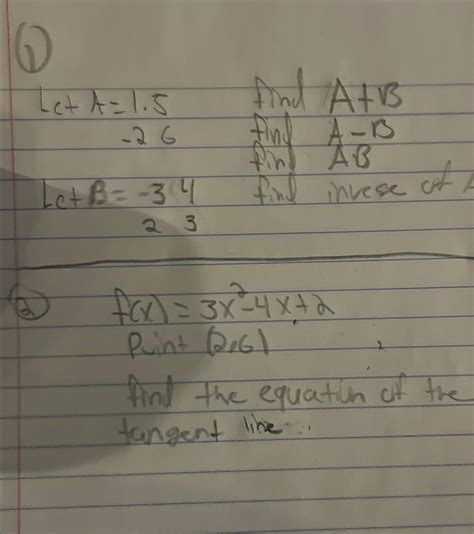 1
Let A = 1. 5 find A+B
-2 6 find A-B
find AB
Let B = -3 4 find invese of A
2 3
2 f(x) = 3x²-4x+2
Point (2,6)
find the equatiun of the
tangent line